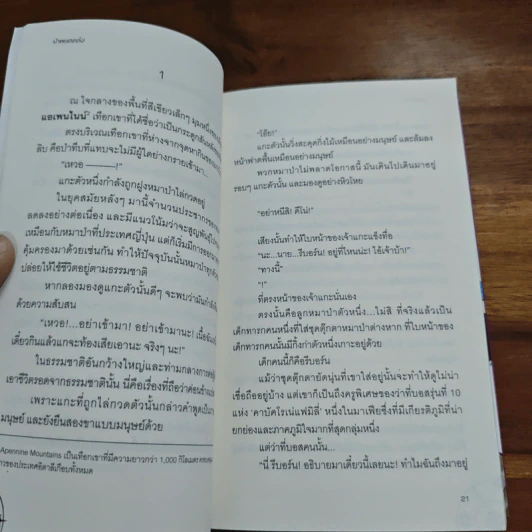 ป่าพยอดตอง
1
ณ ใจกลางของพื้นที่สีเขียวเล็กๆ มุมหนึ่งของ
แอเพนไนน์ เทือกเขาที่ได้ชื่อว่าเป็นกระดูกสันหลัง
ตรงบริเวณเทือกเขาที่ห่างจากจุดหากินของ
ลิบ คือป่าทึบที่แทบจะไม่มีผู้ใดย่างกรายเข้ามา...
"เหวอ ———!"
แกะตัวหนึ่งกำลังถูกฝูงหมาป่าไล่กวดอยู่
ในยุคสมัยหลังๆ มานี้จำนวนประชากรของ
ลดลงอย่างต่อเนื่อง และมีแนวโน้มว่าจะสูญพันธุ์ไป
เหมือนกับหมาป่าที่ประเทศญี่ปุ่น แต่ก็เริ่มมีการออก
คุ้มครองมาด้วยเช่นกัน ทำให้ปัจจุบันนั้นหมาป่าถูก
ปล่อยให้ใช้ชีวิตอยู่ตามธรรมชาติ
หากลองมองดูแกะตัวนั้นดีๆ จะพบว่ามันกำลัง
ด้วยความสับสน
"เหวอ!...อย่าเข้ามา! อย่าเข้ามานะ! เนื้อฉัน
เดี๋ยวกินแล้วแกจะท้องเสียเอานะ จริงๆ นะ!"
ในธรรมชาติอันกว้างใหญ่และท่ามกลางการ
เอาชีวิตรอดจากธรรมชาตินั้น นี่คือเรื่องที่ถือว่าค่อนข้าง
เพราะแกะที่ถูกไล่กวดตัวนั้นกล่าวคำพูดเป็น
มนุษย์ และยังยืนสองขาแบบมนุษย์ด้วย
Apennine Mountains เป็นเทือกเขาที่มีความยาวกว่า 1,000 กิโลเมตร
าวของประเทศอิตาลีเกือบทั้งหมด
"โอ๊ย!"
แกะตัวนั้นวิ่งสะดุดกิ่งไม้เหมือนอย่างมนุษย์ และล้มลง
หน้าฟาดพื้นเหมือนอย่างมนุษย์
พวกหมาป่าไม่พลาดโอกาสนี้ มันเดินไปเดินมาอยู่
รอบๆ แกะตัวนั้น และมองดูอย่างหิวโหย
"อย่าหนีสิ! ดีโน่!"
เสียงนั้นทำให้ใบหน้าของเจ้าแกะแข็งทื่อ
"นะ...นาย...รีบอร์น! อยู่ที่ไหนน่ะ! ไอ้เจ้าบ้า!"
"ทางนี้"
"!"
ที่ตรงหน้าของเจ้าแกะนั่นเอง
ตรงนั้นคือลูกหมาป่าตัวหนึ่ง...ไม่สิ ที่จริงแล้วเป็น
เด็กทารกคนหนึ่งที่ใส่ชุดตุ๊กตาหมาป่าต่างหาก ที่ใบหน้าของ
เด็กทารกคนนั้นมีกิ้งก่าตัวหนึ่งเกาะอยู่ด้วย
เด็กคนนี้ก็คือรีบอร์น
แม้ว่าชุดตุ๊กตายัดนุ่นที่เขาใส่อยู่นั้นจะทำให้ดูไม่น่า
เชื่อถืออยู่บ้าง แต่เขาก็เป็นถึงครูพิเศษของว่าที่บอสรุ่นที่ 10
แห่ง 'คาบัคโรเน่แฟมิลี่' หนึ่งในมาเฟียซึ่งที่มีเกียรติภูมิที่น่า
ยกย่องและภาคภูมิใจมากที่สุดกลุ่มหนึ่ง
แต่ว่าที่บอสคนนั้น...
"นี่ รีบอร์น! อธิบายมาเดี๋ยวนี้เลยนะ! ทำไมฉันถึงมาอยู่
21